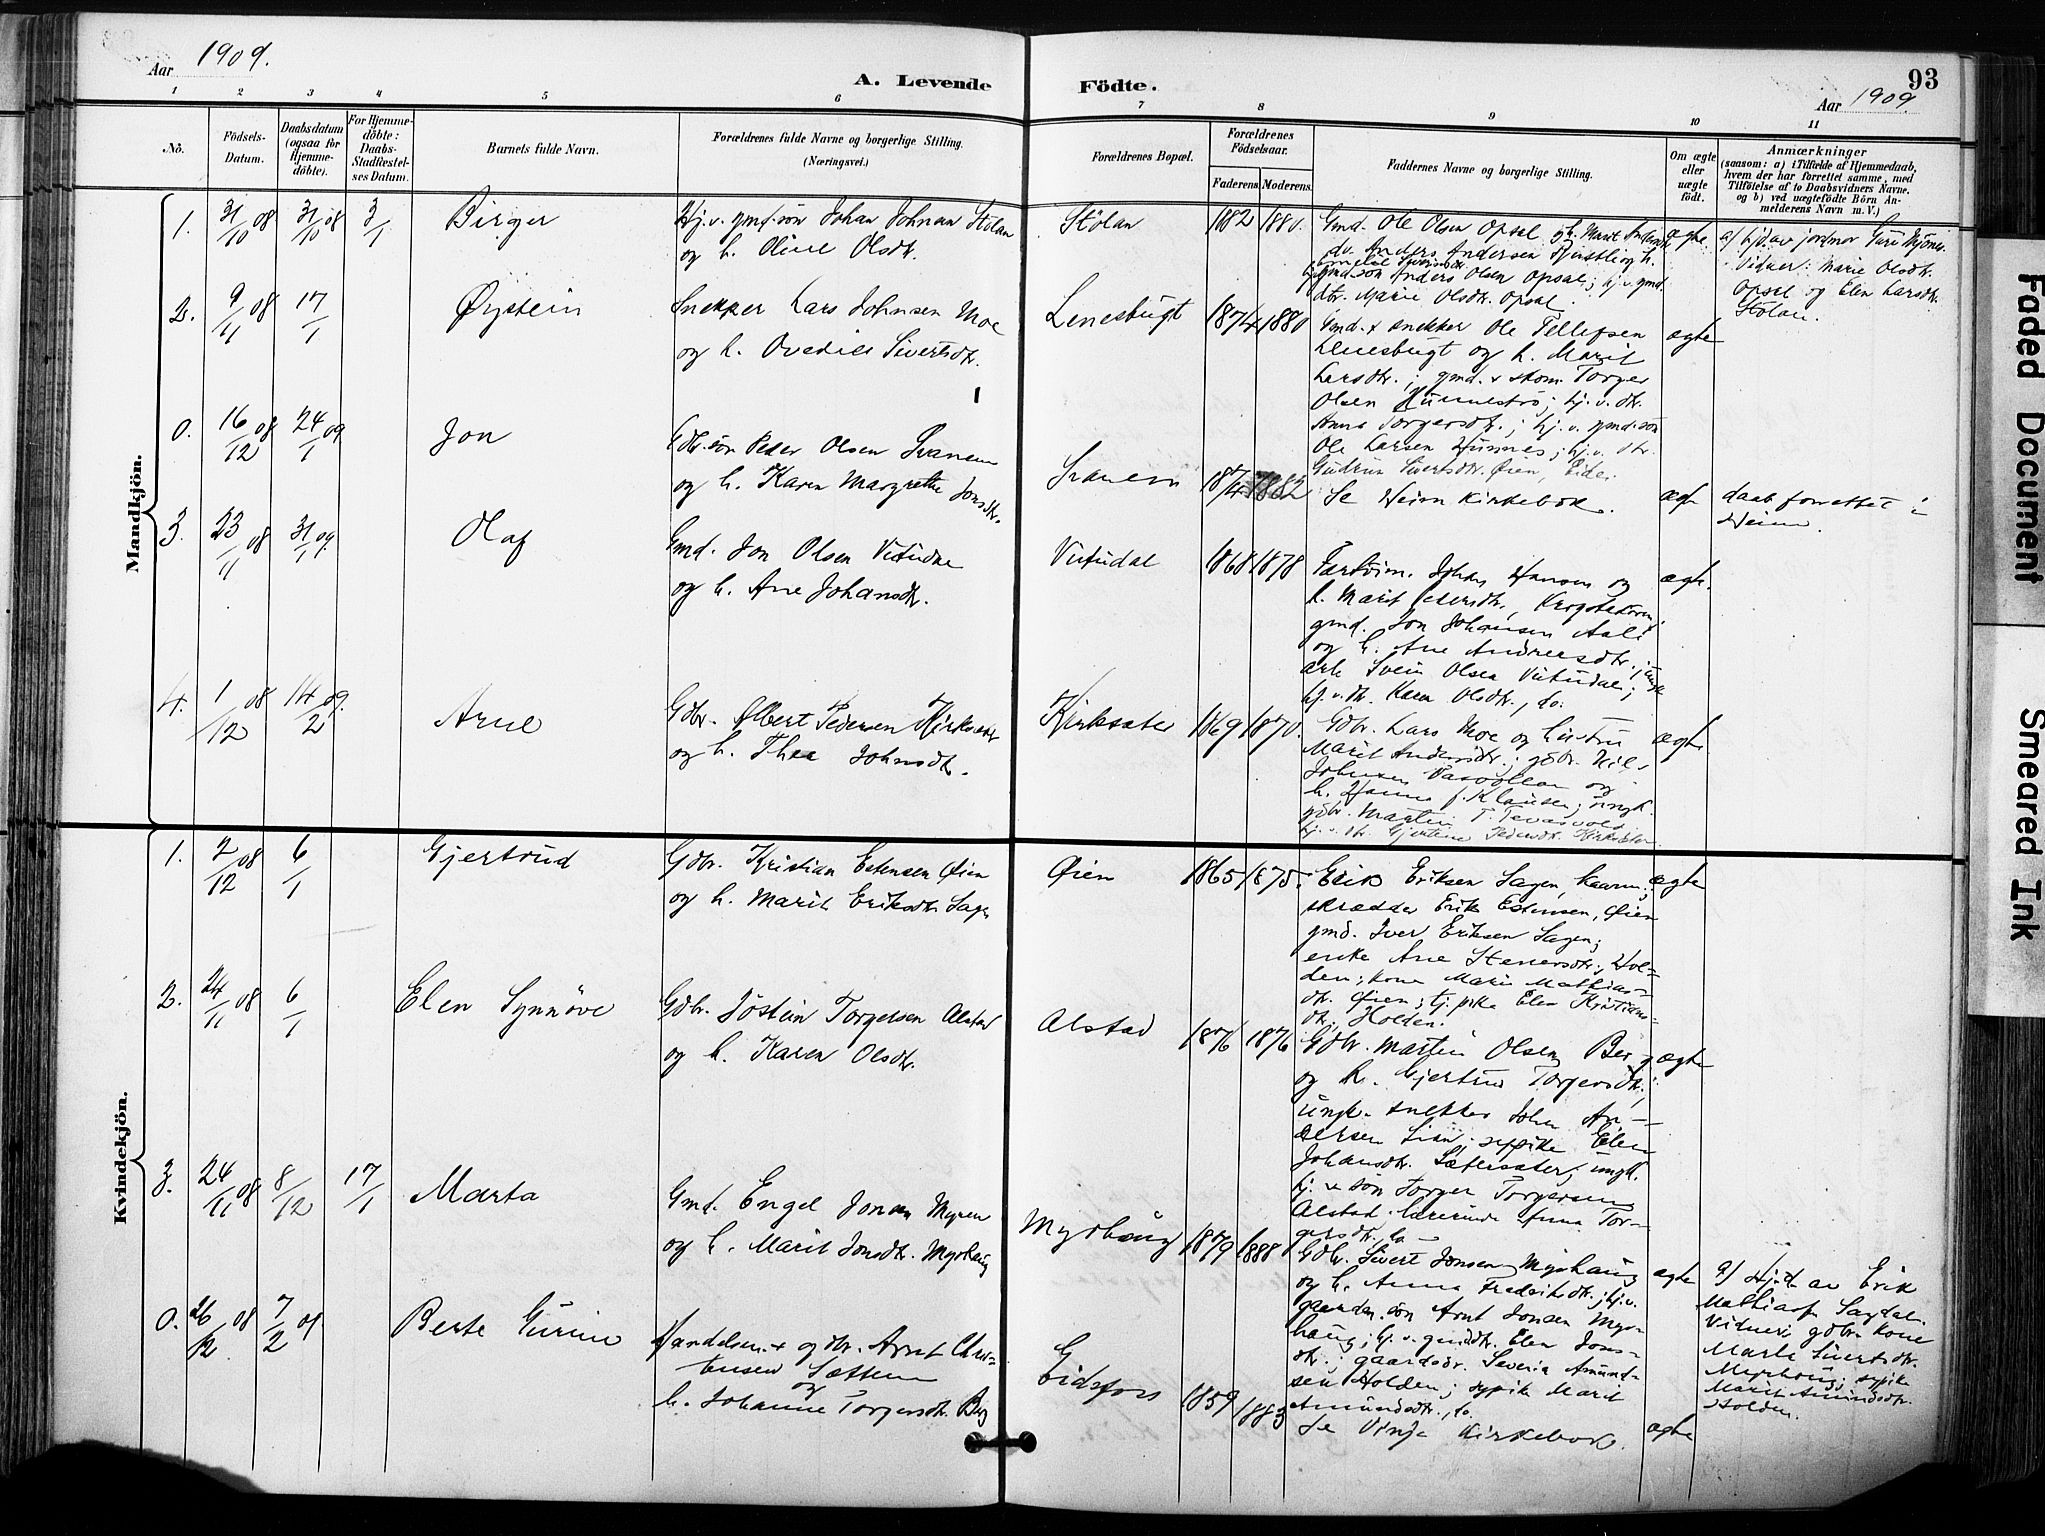 Aar 1909.
A. Levende
Födte.
93
Aar 1909
1 2 3 4 5 6 7 8 9 10 11
No.
Födsels-
Datum.
Daabsdatum
(ogsaa for
Hjemme-
döbte).
For Hjemme-
döbte:
Daabs-
Stadfæstel-
ses Datum.
Barnets fulde Navn.
Forældrenes fulde Navne og borgerlige Stilling.
(Næringsvei.)
Forældrenes Bopæl.
Forældrenes
Födselsaar.
Faderens. Moderens.
Faddernes Navne og borgerlige Stilling.
Om ægte
eller
uægte
födt.
Anmærkninger
(saasom: a) i Tilfælde af Hjemmedaab,
hvem der har forrettet samme, med
Tilföielse af to Daabsvidners Navne.
og b) ved uægtefödte Börn An-
melderens Navn m. V.)
Mandkjön.
1. 31/10 08 31/10 08 3/1 Birger
Hj. v. gmd. sön Johan Johnsen Stölan
og h. Oline Olsdtr.
Stölan 1882 1880.
Gmd. Ole Olsen Opsal og h. Marit
do. Anders Andersen
gmd. sön Anders Olsen Opsal; hj. v. gmd.
dtr. Marie Olsdtr. Opsal.
ægte
a) hjd. av jordmor Guri
Vidner: Marie Olsdtr.
Opsal og Elen Larsdtr.
Stölan.
2. 9/11 08 17/1 Øystein
Snekker Lars Johnsen Moe
og h. Sivertsdtr.
Lenesbugt 1874 1880
Gmd. + snekker Ole Tellefsen
Lenesbugt og h. Marit
Larsdtr.; gmd. + skom. Torger
Olsen hj. v. dtr.
Anna Torgersdtr.; hj. v. gmd. sön
Ole Larsen Hunnes; hj. v. dtr.
Gudrun Sivertsdtr. Øien,
ægte
0. 16/12 08 24/1 09 Jon
Gdbr. sön Peder Olsen Svanem
og h. Karen Margrethe Jonsdtr.
Svanem 1874 1882
Se Heim Kirkebok.
ægte
daab forrettet i
Heim.
3. 23/11 08 31/1 09. Olaf
Gmd. Jon Olsen
og h. Ane Johansdtr.
1868 1878
Johan Hansen og
h. Marit Pedersdtr.,
gmd. Jon Johansen
og h. Ane Andreasdtr.;
arb. Svein Olsen
hj. v. dtr. Karen Olsdtr., do.
ægte.
4. 1/12 08 14/2 09. Arne
Gdbr. Albert Pedersen Kirksæter
og h. Thea Johnsdtr.
Kirksæter 1869 1870.
Gdbr. Lars Moe og hustru
Marit Andersdtr.; gdbr. Nils
Johnsen og
h. Hanna f. Klausen; ungk.
gdbr. Martin T.
hj. v. dtr. Gjertine Pedersdtr. Kirksæter.
ægte
Kvindekjön.
1. 2/12 08 6/1 Gjertrud
Gdbr. Kristian Estensen Øien
og h. Marit Eriksdtr. Sagen
Øien 1865 1875.
Erik Eriksen Sagen,
skrædder Erik Estensen, Øien
gmd. Iver Eriksen Sagen;
enke Ane Steensdtr., Hol-
den; kone Marie Mathias-
dtr. Øien; tj. pike Elen Kristians-
dtr. Holden.
ægte
2. 24/11 08 6/1 Elen Synnöve
Gdbr. Jöstein Torgersen Alstad
og h. Karen Olsdtr.
Alstad 1876 1876
Gdbr. Martin Olsen Berg
og h. Gjertrud Torgersdtr.;
ungk. snekker John An-
dersen Lian; sypike Elen
Johansdtr. Sætersæter; ungk.
hj. v. sön Torger Torgersen
Alstad. Lærerinde Anna Tor-
gersdtr. do –
ægte
3. 24/11 08 8/12 17/1 Marta
Gmd. Engel Jonsen Myren
og h. Marit Jonsdtr. Myrhaug
Myrhaug 1879 1888
Gdbr. Sivert Jonsen Myrhaug
og h. Anna Frederiksdtr.; hj. v.
gaardm. sön Arnt Jonsen Myr-
haug; hj. v. gmddtr. Elen Jons-
dtr.; gaardsdr. Severin Amund-
sen Holden; sypike Marit
Amundsdtr., do.
ægte
a) Hjd. av Erik
Mathiasen Sagdal.
Vidner: gdbr. kone
Marta Sivertsdtr.
Myrhaug; sypike
Marit Amundsdtr.
Holden.
0. 26/12 08 7/2 09 Berte Gurine
Handelsm. + gdbr. Arnt Chris-
tensen Sættem
og
h. Johanne Torgersdtr. Berg
Eidsfors 1859 1883
Se Vinje Kirkebok.
ægte
Faded Document
Smeared Ink